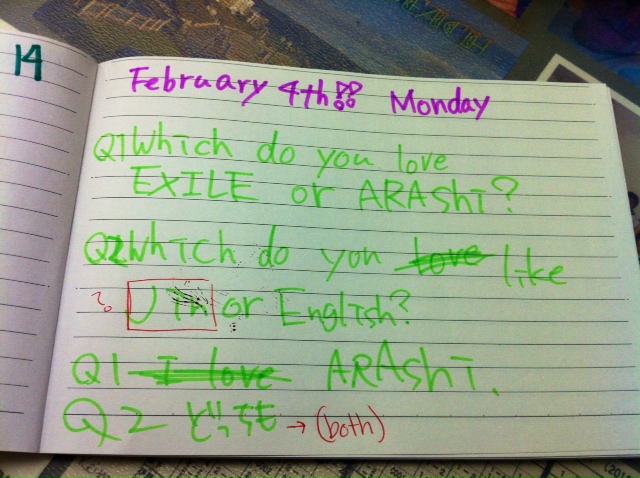 14
February 4th!! Monday
Q1 Which do you love
EXILE or ARAShi?
Q2 Which do you love like
? Jin or English?
Q1 I love ARAShi.
Q2 どっちも → (both)